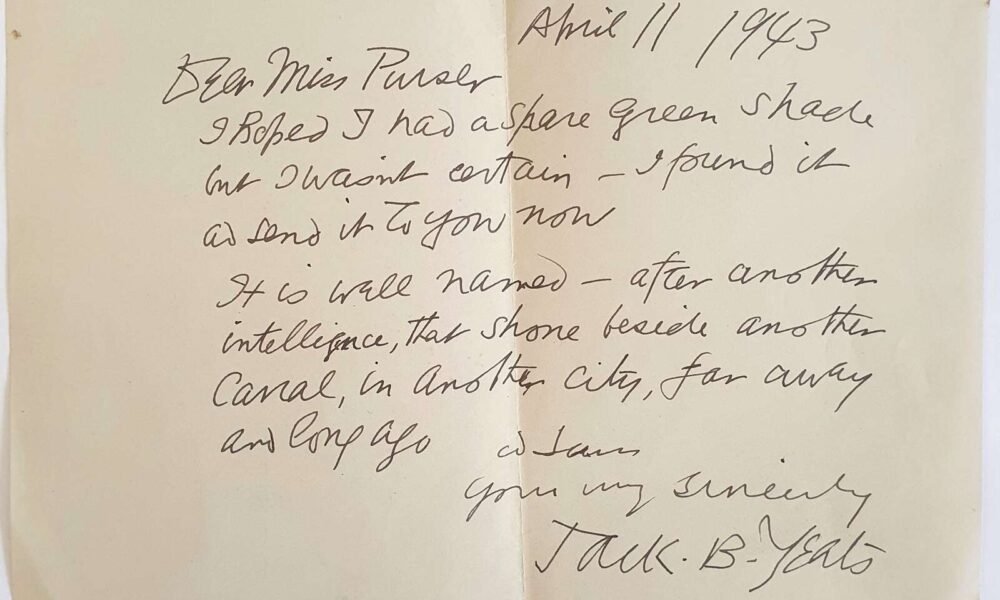 April 11 1943
Dear Miss Purser
I hoped I had a spare green shade
but I wasnt certain – I found it
ad send it to you now
It is well named – after another
intelligence, that shone beside another
Canal, in another city, far away
and long ago
ad I am
yours very sincerely
Jack. B. Yeats